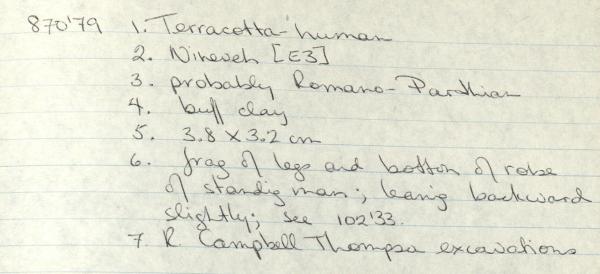 870'79 1. Terracotta-human
2. Nineveh [E3]
3. probably Romano-Parthian
4. buff clay
5. 3.8 x 3.2 cm
6. frag of legs and bottom of robe
of standing man; leaning backward
slightly; see 102'33.
7. R. Campbell Thompson excavations